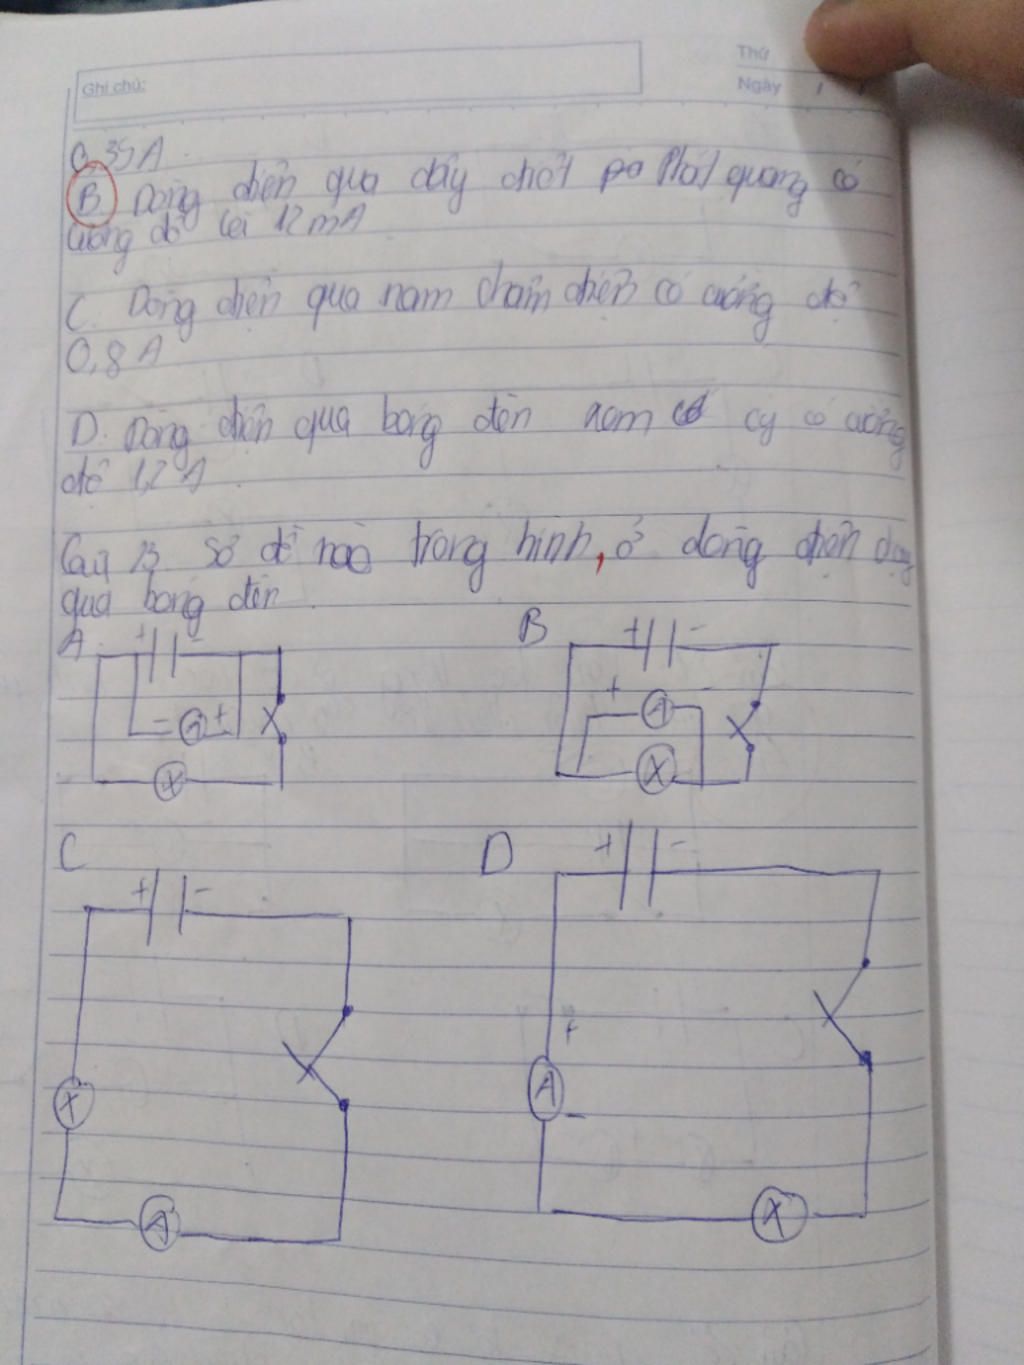 Thứ
Ghi chú:
Ngày
0,35A
B. Dòng điện qua dây điốt pa Phát quang có
cường độ là 12mA
C. Dòng điện qua nam châm điện có cường độ
0,8A
D. Dòng điện qua bóng đèn xam cy có cường
độ 1,2A
Câu 13 Sơ đồ nào trong hình, ở dòng điện đang
qua bóng đèn
A + -
B + -
+ A
- A +
X
X
C + -
D + -
+
X
A
-
A
X